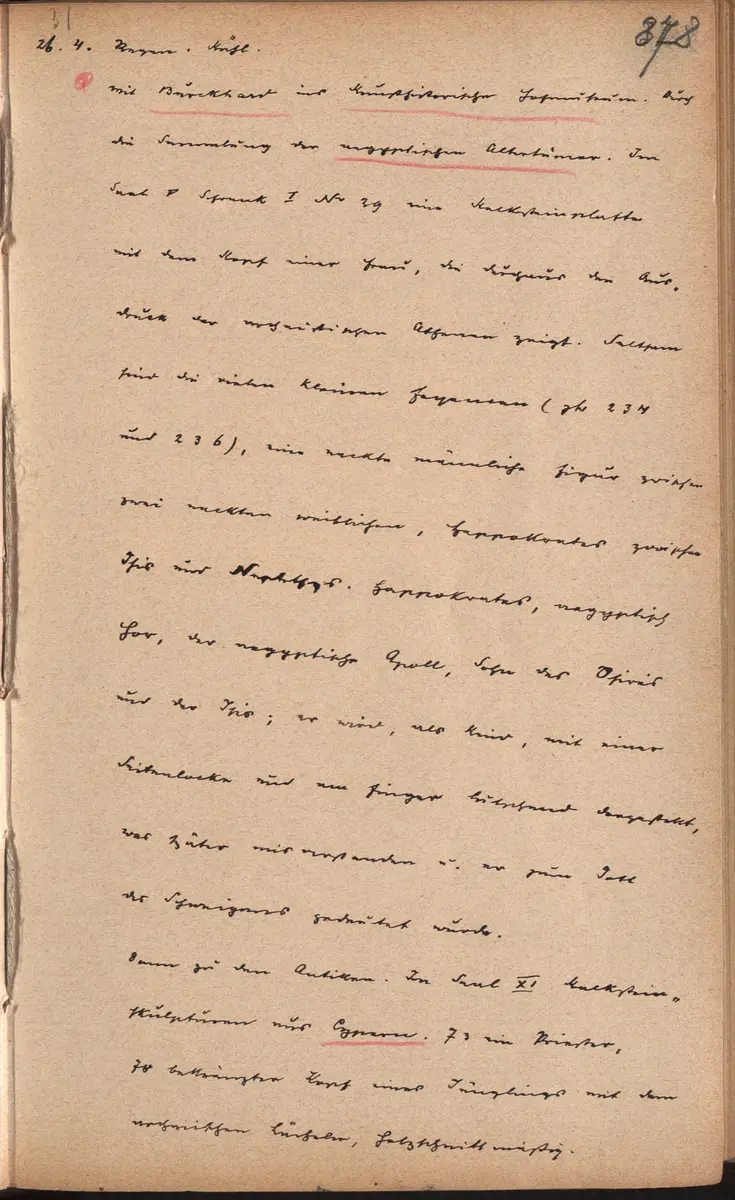 31
878
26. 4. Regen. Kühl.
mit Burckhard ins Kunsthistorische Hofmuseum. Durch
die Sammlung der aegyptischen Altertümer. Im
Saal V Schrank I No 39 eine Kalksteinplatte
mit dem Kopf einer Frau, die durchaus den Aus-
druck der archaistischen Athenen zeigt. Seltsam
sind die vielen kleinen Fayencen (234
und 236), eine nackte männliche Figur zwischen
zwei nackten weiblichen, Harpokrates zwischen
Isis und Nephthys. Harpokrates, aegyptisch
Hor, der aegyptische Apoll, Sohn des Osiris
und der Isis; er wird, als Kind, mit einer
Seitenlocke und am Finger lutschend dargestellt,
was später misverstanden u. er zum Gott
des Schweigens gedeutet wurde.
Dann zu den Antiken. In Saal XI Kalkstein-
skulpturen aus Cypern. 73 ein Priester,
78 bekränzter Kopf eines Jünglings mit dem
archaischen Lächeln, holzschnittmässig.